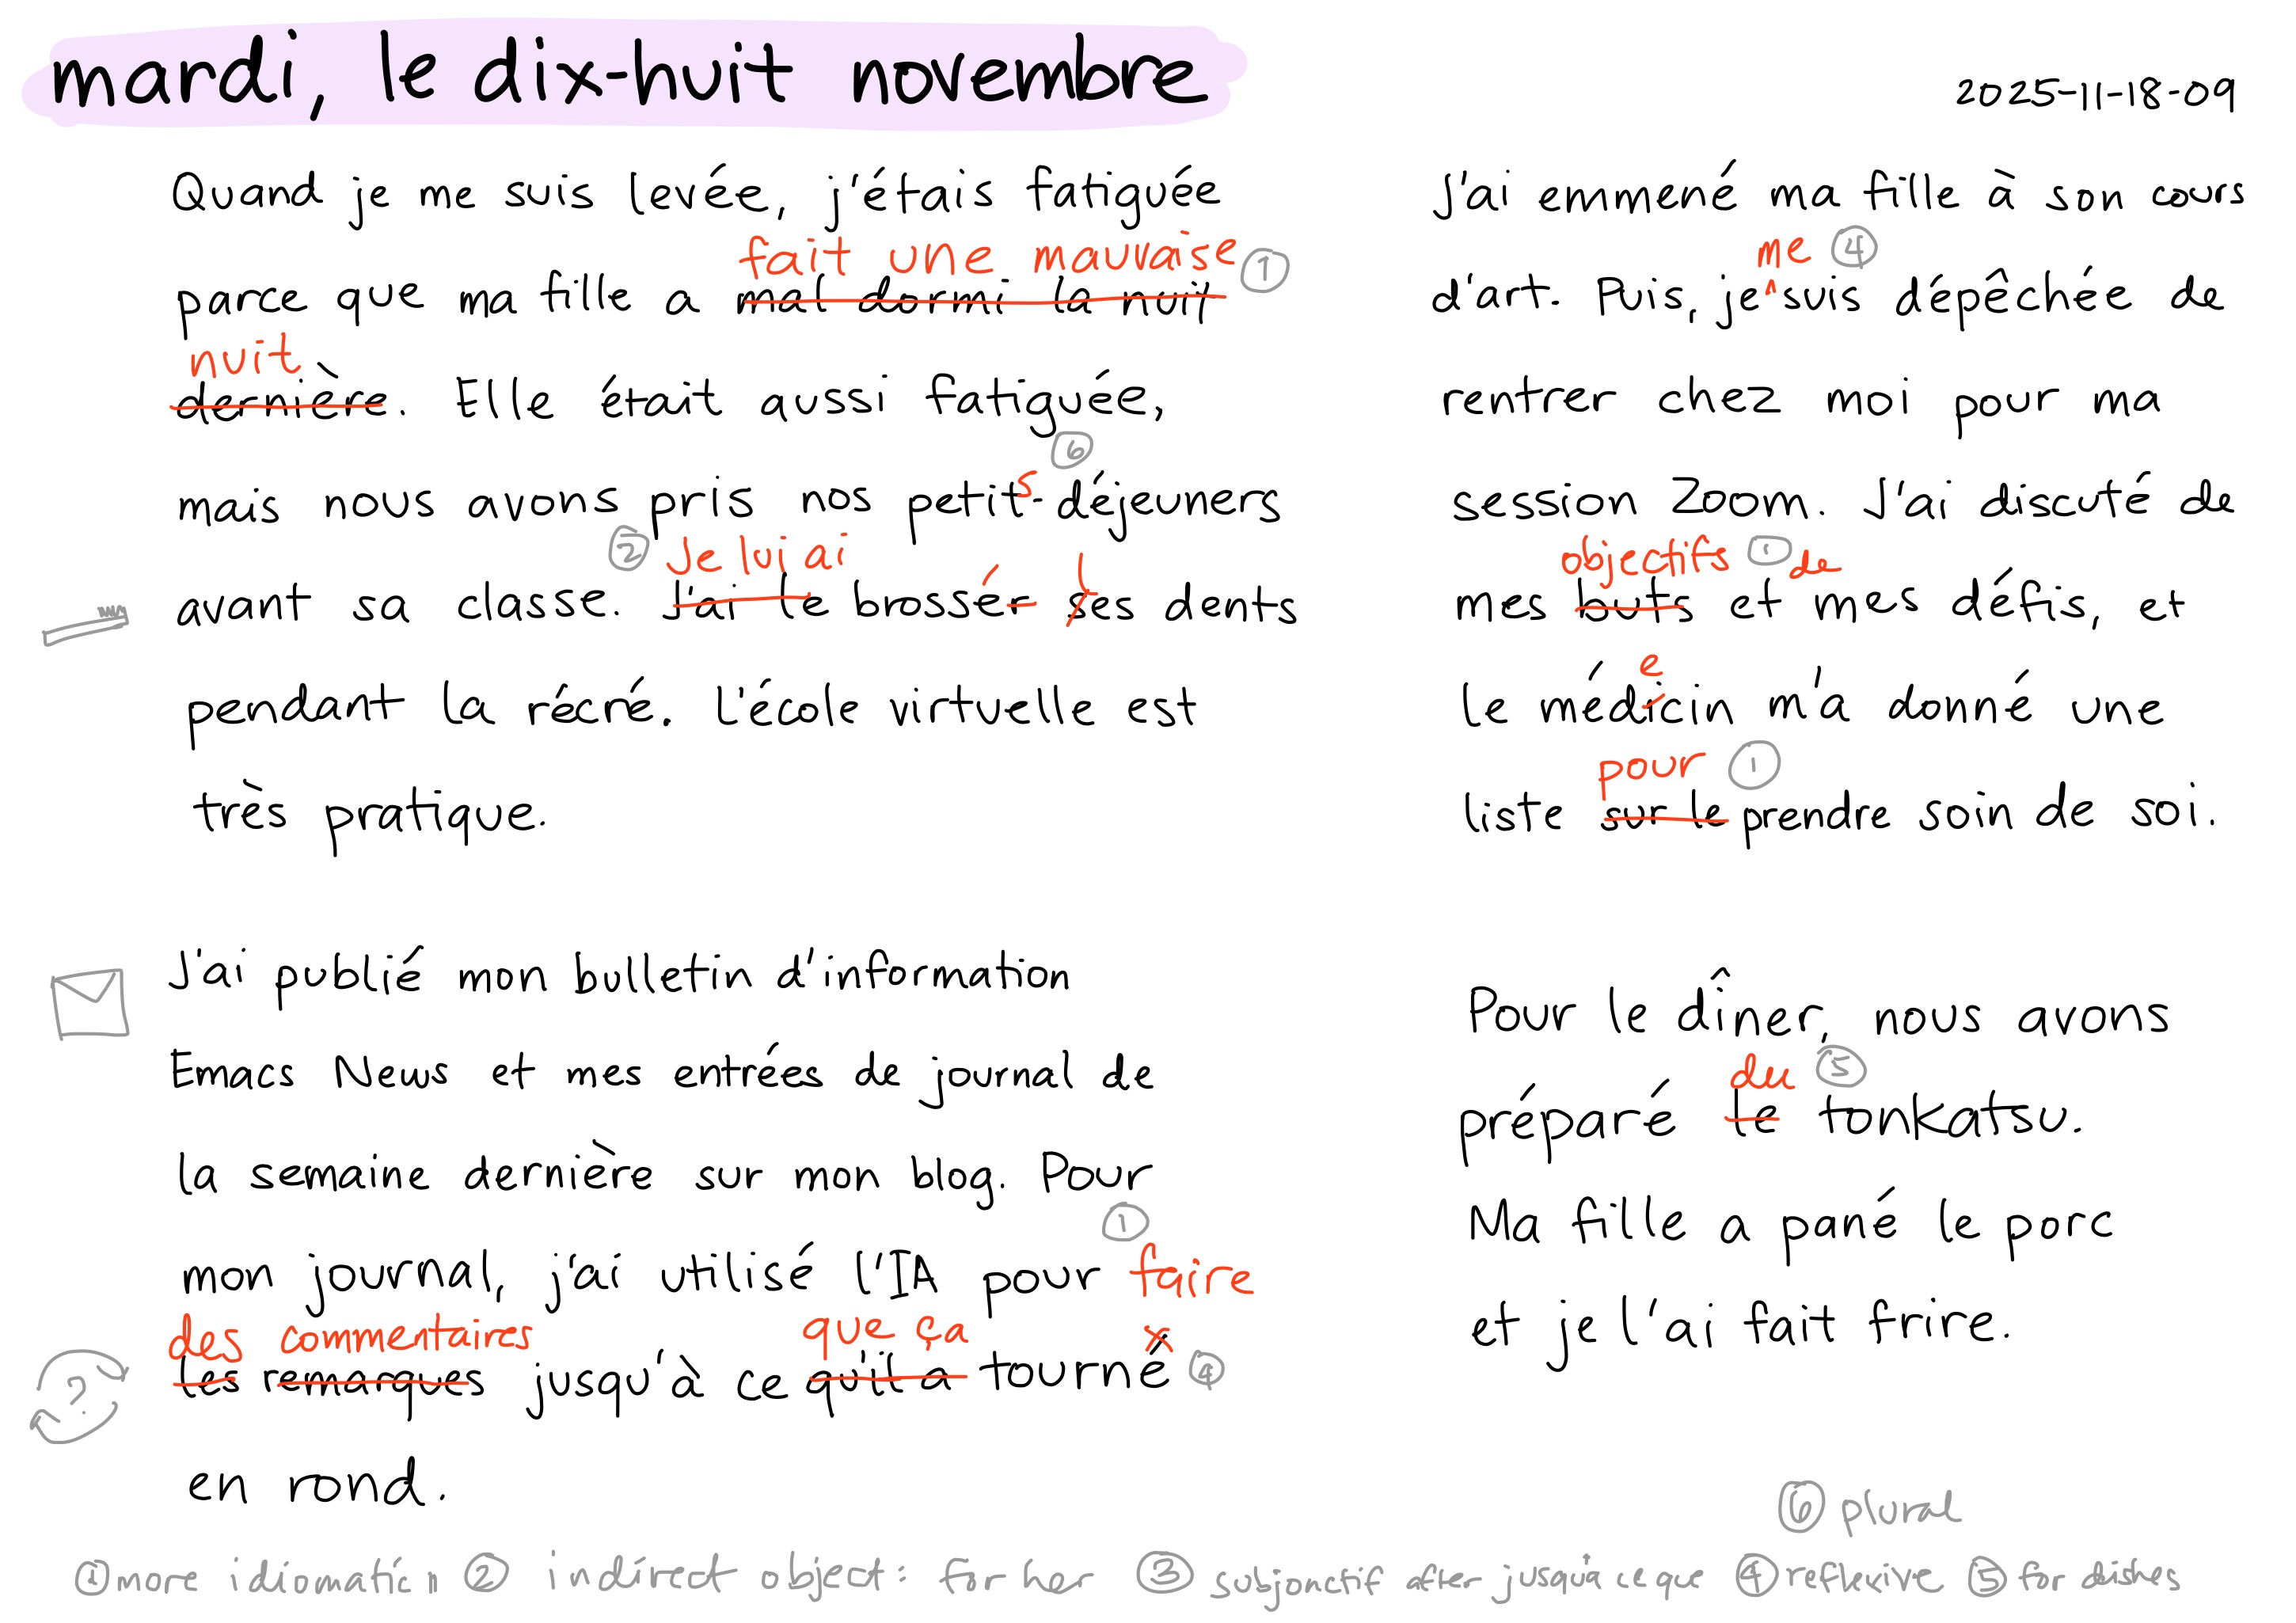 mardi, le dix-huit novembre
2025-11-18-09
Quand je me suis levée, j'étais fatiguée
fait une mauvaise ①
parce que ma fille a mal dormi la nuit
nuit
dernière. Elle était aussi fatiguée,
⑥
mais nous avons pris nos petits-déjeuners
② Je lui ai l
avant sa classe. J'ai le brossér ses dents
pendant la récré. L'école virtuelle est
très pratique.
J'ai publié mon bulletin d'information
Emacs News et mes entrées de journal de
la semaine dernière sur mon blog. Pour
①
mon journal, j'ai utilisé l'IA pour faire
des commentaires que ça x
les remarques jusqu'à ce qu'il a tourné ④
?
en rond.
J'ai emmené ma fille à son cours
me ④
d'art. Puis, je suis dépêchée de
rentrer chez moi pour ma
session Zoom. J'ai discuté de
objectifs ① de
mes buts et mes défis, et
e
le médicin m'a donné une
pour ①
liste sur le prendre soin de soi.
Pour le dîner, nous avons
du ⑤
préparé le tonkatsu.
Ma fille a pané le porc
et je l'ai fait frire.
⑥ plural
① more idiomatic n ② indirect object: for her ③ subjonctif after jusqu'à ce que ④ reflexive ⑤ for dishes